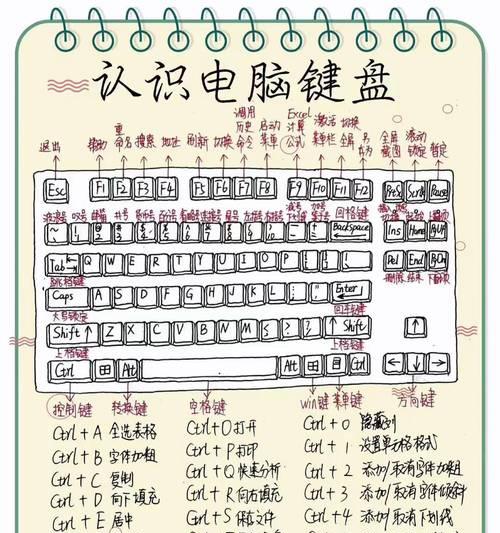 认识电脑键盘
调用 Excel
重 历史 启动 计算 激活 切换 另 全屏 滚动
退出 帮助 命名 搜索 地址 刷新 切换 命令 菜单 公式 菜单栏 全屏 存为 截图 锁定 暂定
Esc F1 F2 F3 F4 F5 F6 F7 F8 F9 F10 F11 F12 PrtSc ScrLk Pause
波浪号 叹号 井号 左括号 右括号 回格键
BackSpace Ins Home PgUp
Tab Q W E R T Y U I O P Del End PgDn
删除 结束 下翻页
Caps A S D F G H J K L Enter
大写锁定 回车键
Shift Z X C V B N M Shift
上档键 上档键
Ctrl Alt Alt Ctrl
控制键 转换键 空格键 win键 菜单键 方向键
Ctrl + A 全选表格 Ctrl + O 打开 Ctrl + 0 隐藏列
Ctrl + B 字体加粗 Ctrl + P 打印 Ctrl + 1 设置单元格格式
Ctrl + C 复制 Ctrl + Q 快速分析 Ctrl + 2 添加/取消字体加粗
Ctrl + D 向下填充 Ctrl + R 向右填充 Ctrl + 3 添加/取消字体倾斜
Ctrl + E 居中 Ctrl + S 保存文件 Ctrl + 4 添加/取消下划线